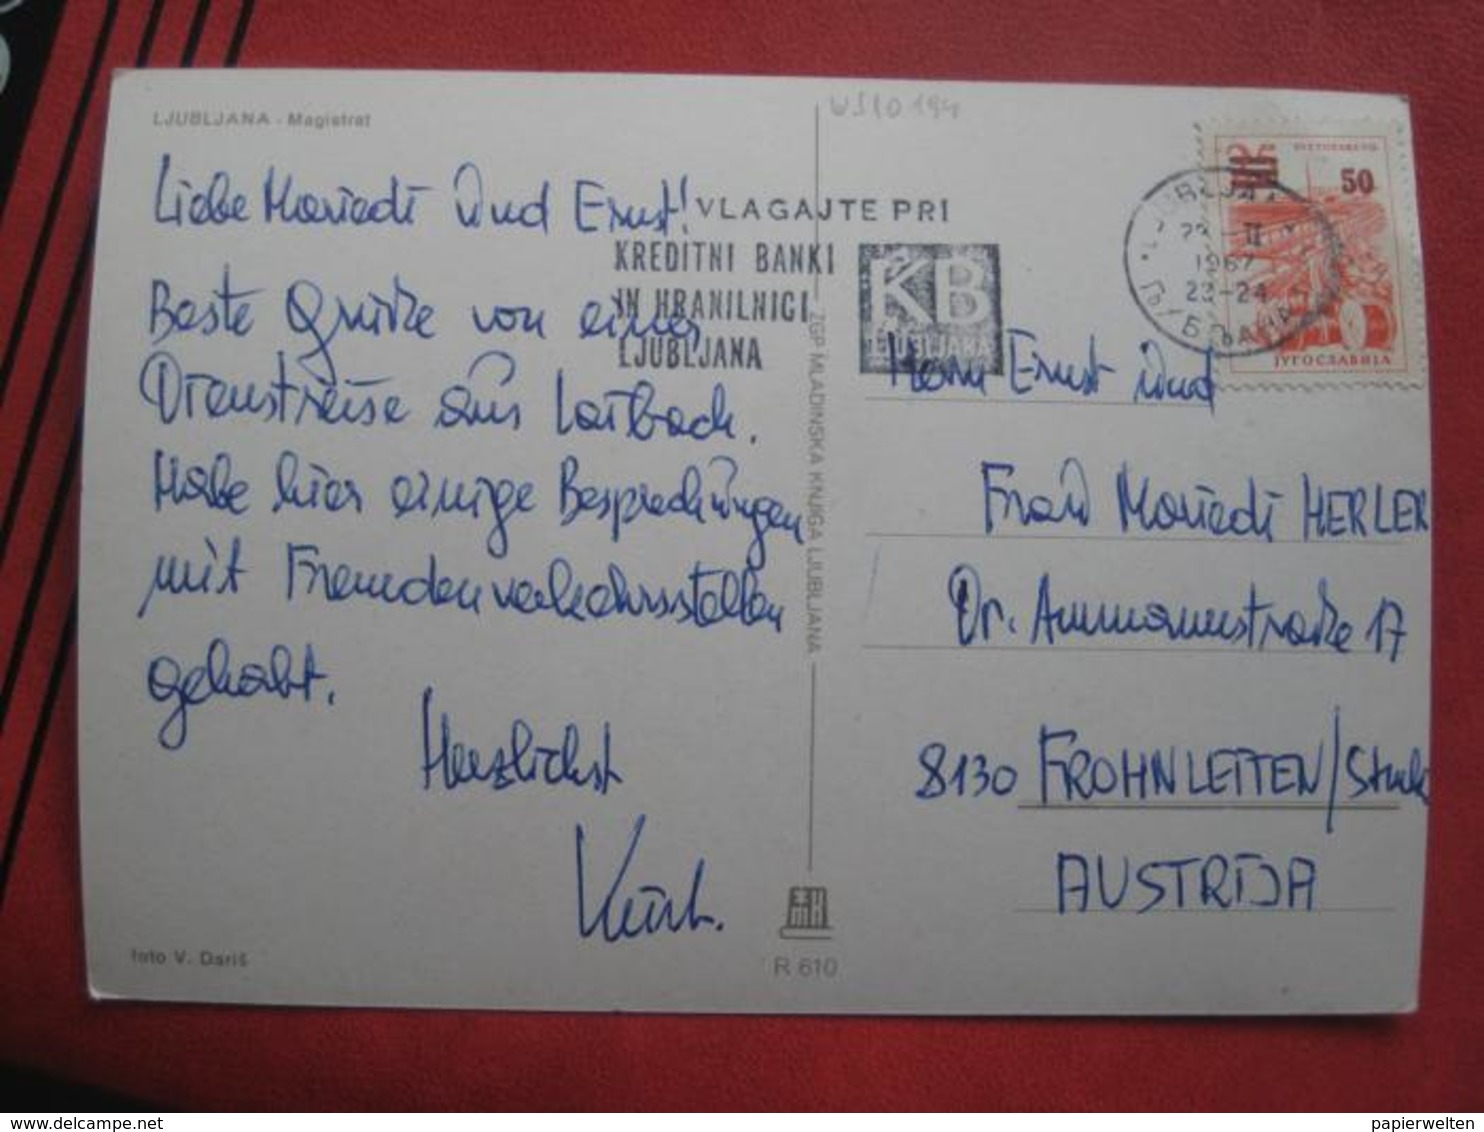 LJUBLJANA - Magistrat
Liebe Mariedi und Ernst!
Beste Grüße von einer
Dienstreise aus Laibach.
Habe hier einige Besprechungen
mit Fremdenverkehrsstellen
gehabt.
Herzlichst
Kurt.
foto V. Dariš
VLAGAJTE PRI
KREDITNI BANKI
IN HRANILNICI
LJUBLJANA
KB
LJUBLJANA
ZGP MLADINSKA KNJIGA LJUBLJANA
MK
R 610
WS10194
LJUBLJANA
23-II
1967
23-24
ЉУБЉАНА
25
50
ЈУГОСЛАВИЈА
Herrn Ernst und
Frau Mariedi HERLER
Dr. Ammannstraße 17
8130 FROHNLEITEN/Stmk
AUSTRIJA
delcampe.net
papierwelten